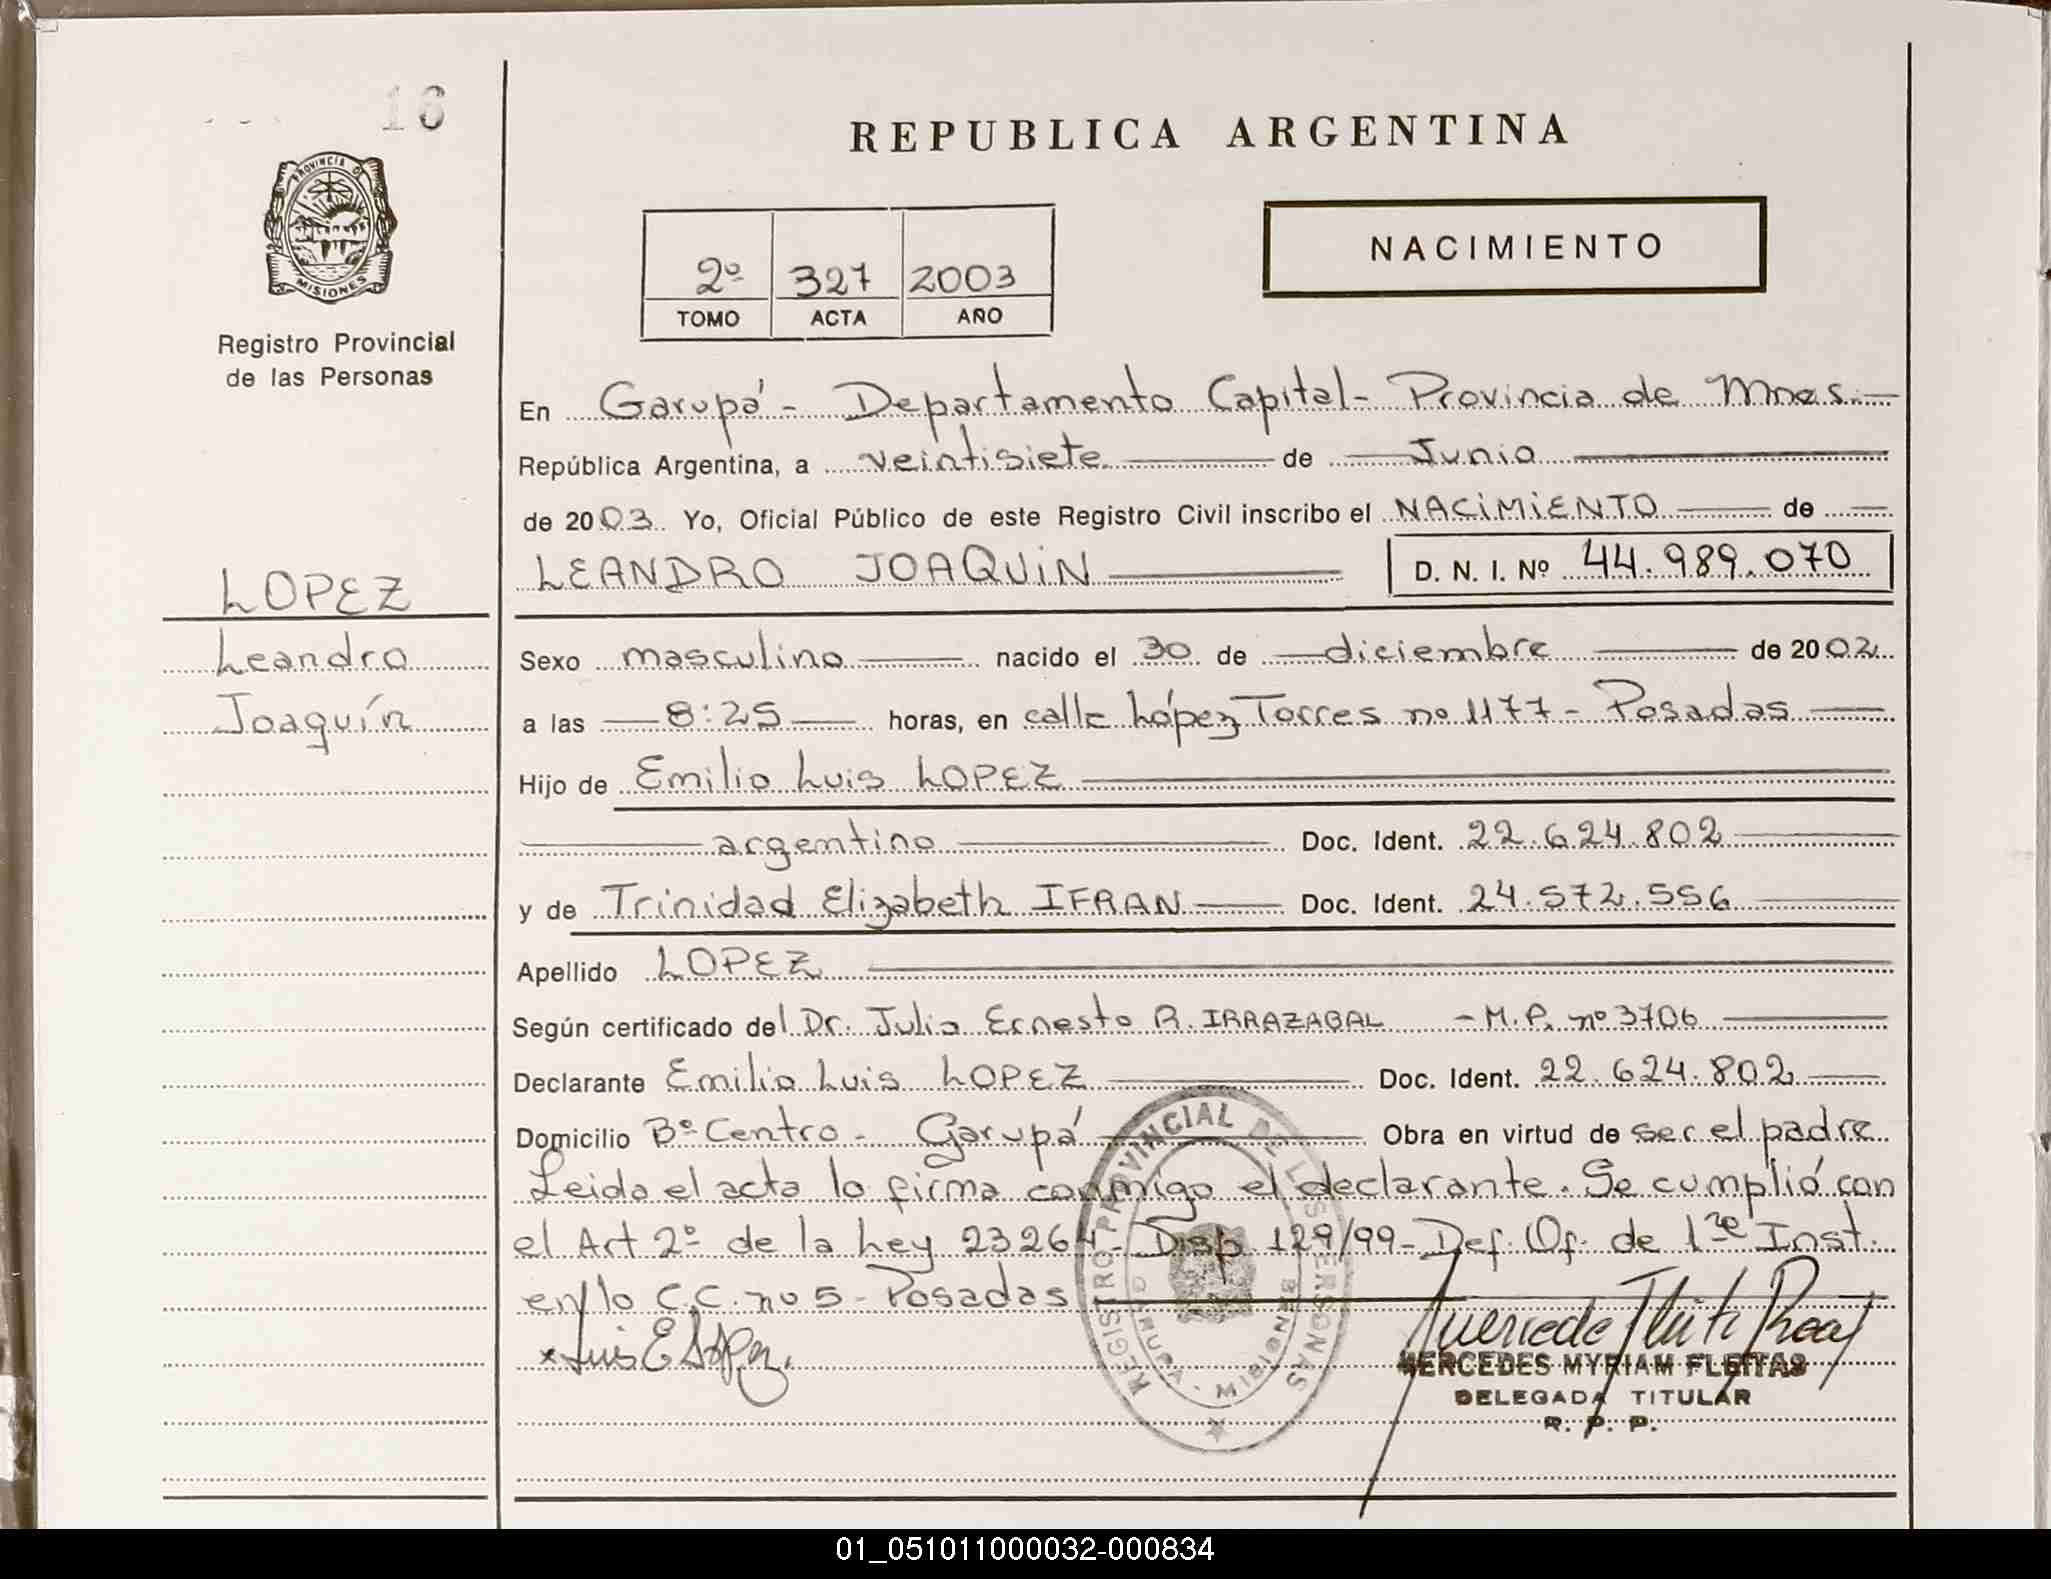 16
PROVINCIA DE
MISIONES
Registro Provincial
de las Personas
LOPEZ
Leandro
Joaquín
REPUBLICA ARGENTINA
NACIMIENTO
2º 327 2003
TOMO ACTA AÑO
En Garupá - Departamento Capital - Provincia de Mnes.
República Argentina, a veintisiete de Junio
de 2003 Yo, Oficial Público de este Registro Civil inscribo el NACIMIENTO de
LEANDRO JOAQUIN D. N. I. Nº 44.989.070
Sexo masculino nacido el 30 de diciembre de 2002
a las 8:25 horas, en calle López Torres nº 1177 - Posadas
Hijo de Emilio Luis LOPEZ
argentino Doc. Ident. 22.624.802
y de Trinidad Elizabeth IFRAN Doc. Ident. 24.572.556
Apellido LOPEZ
Según certificado del Dr. Julio Ernesto R. IRRAZABAL - M.P. nº 3706
Declarante Emilio Luis LOPEZ Doc. Ident. 22.624.802
Domicilio Bº Centro - Garupá Obra en virtud de ser el padre
Leida el acta lo firma conmigo el declarante. Se cumplió con
el Art 2º de la Ley 23264 - Disp 129/99 - Def. Of. de 1re Inst.
en lo C.C. nº 5 - Posadas
REGISTRO PROVINCIAL DE LAS PERSONAS
MISIONES
Luis E Lopez.
MERCEDES MYRIAM FLEITAS
DELEGADA TITULAR
R. P. P.
01_051011000032-000834